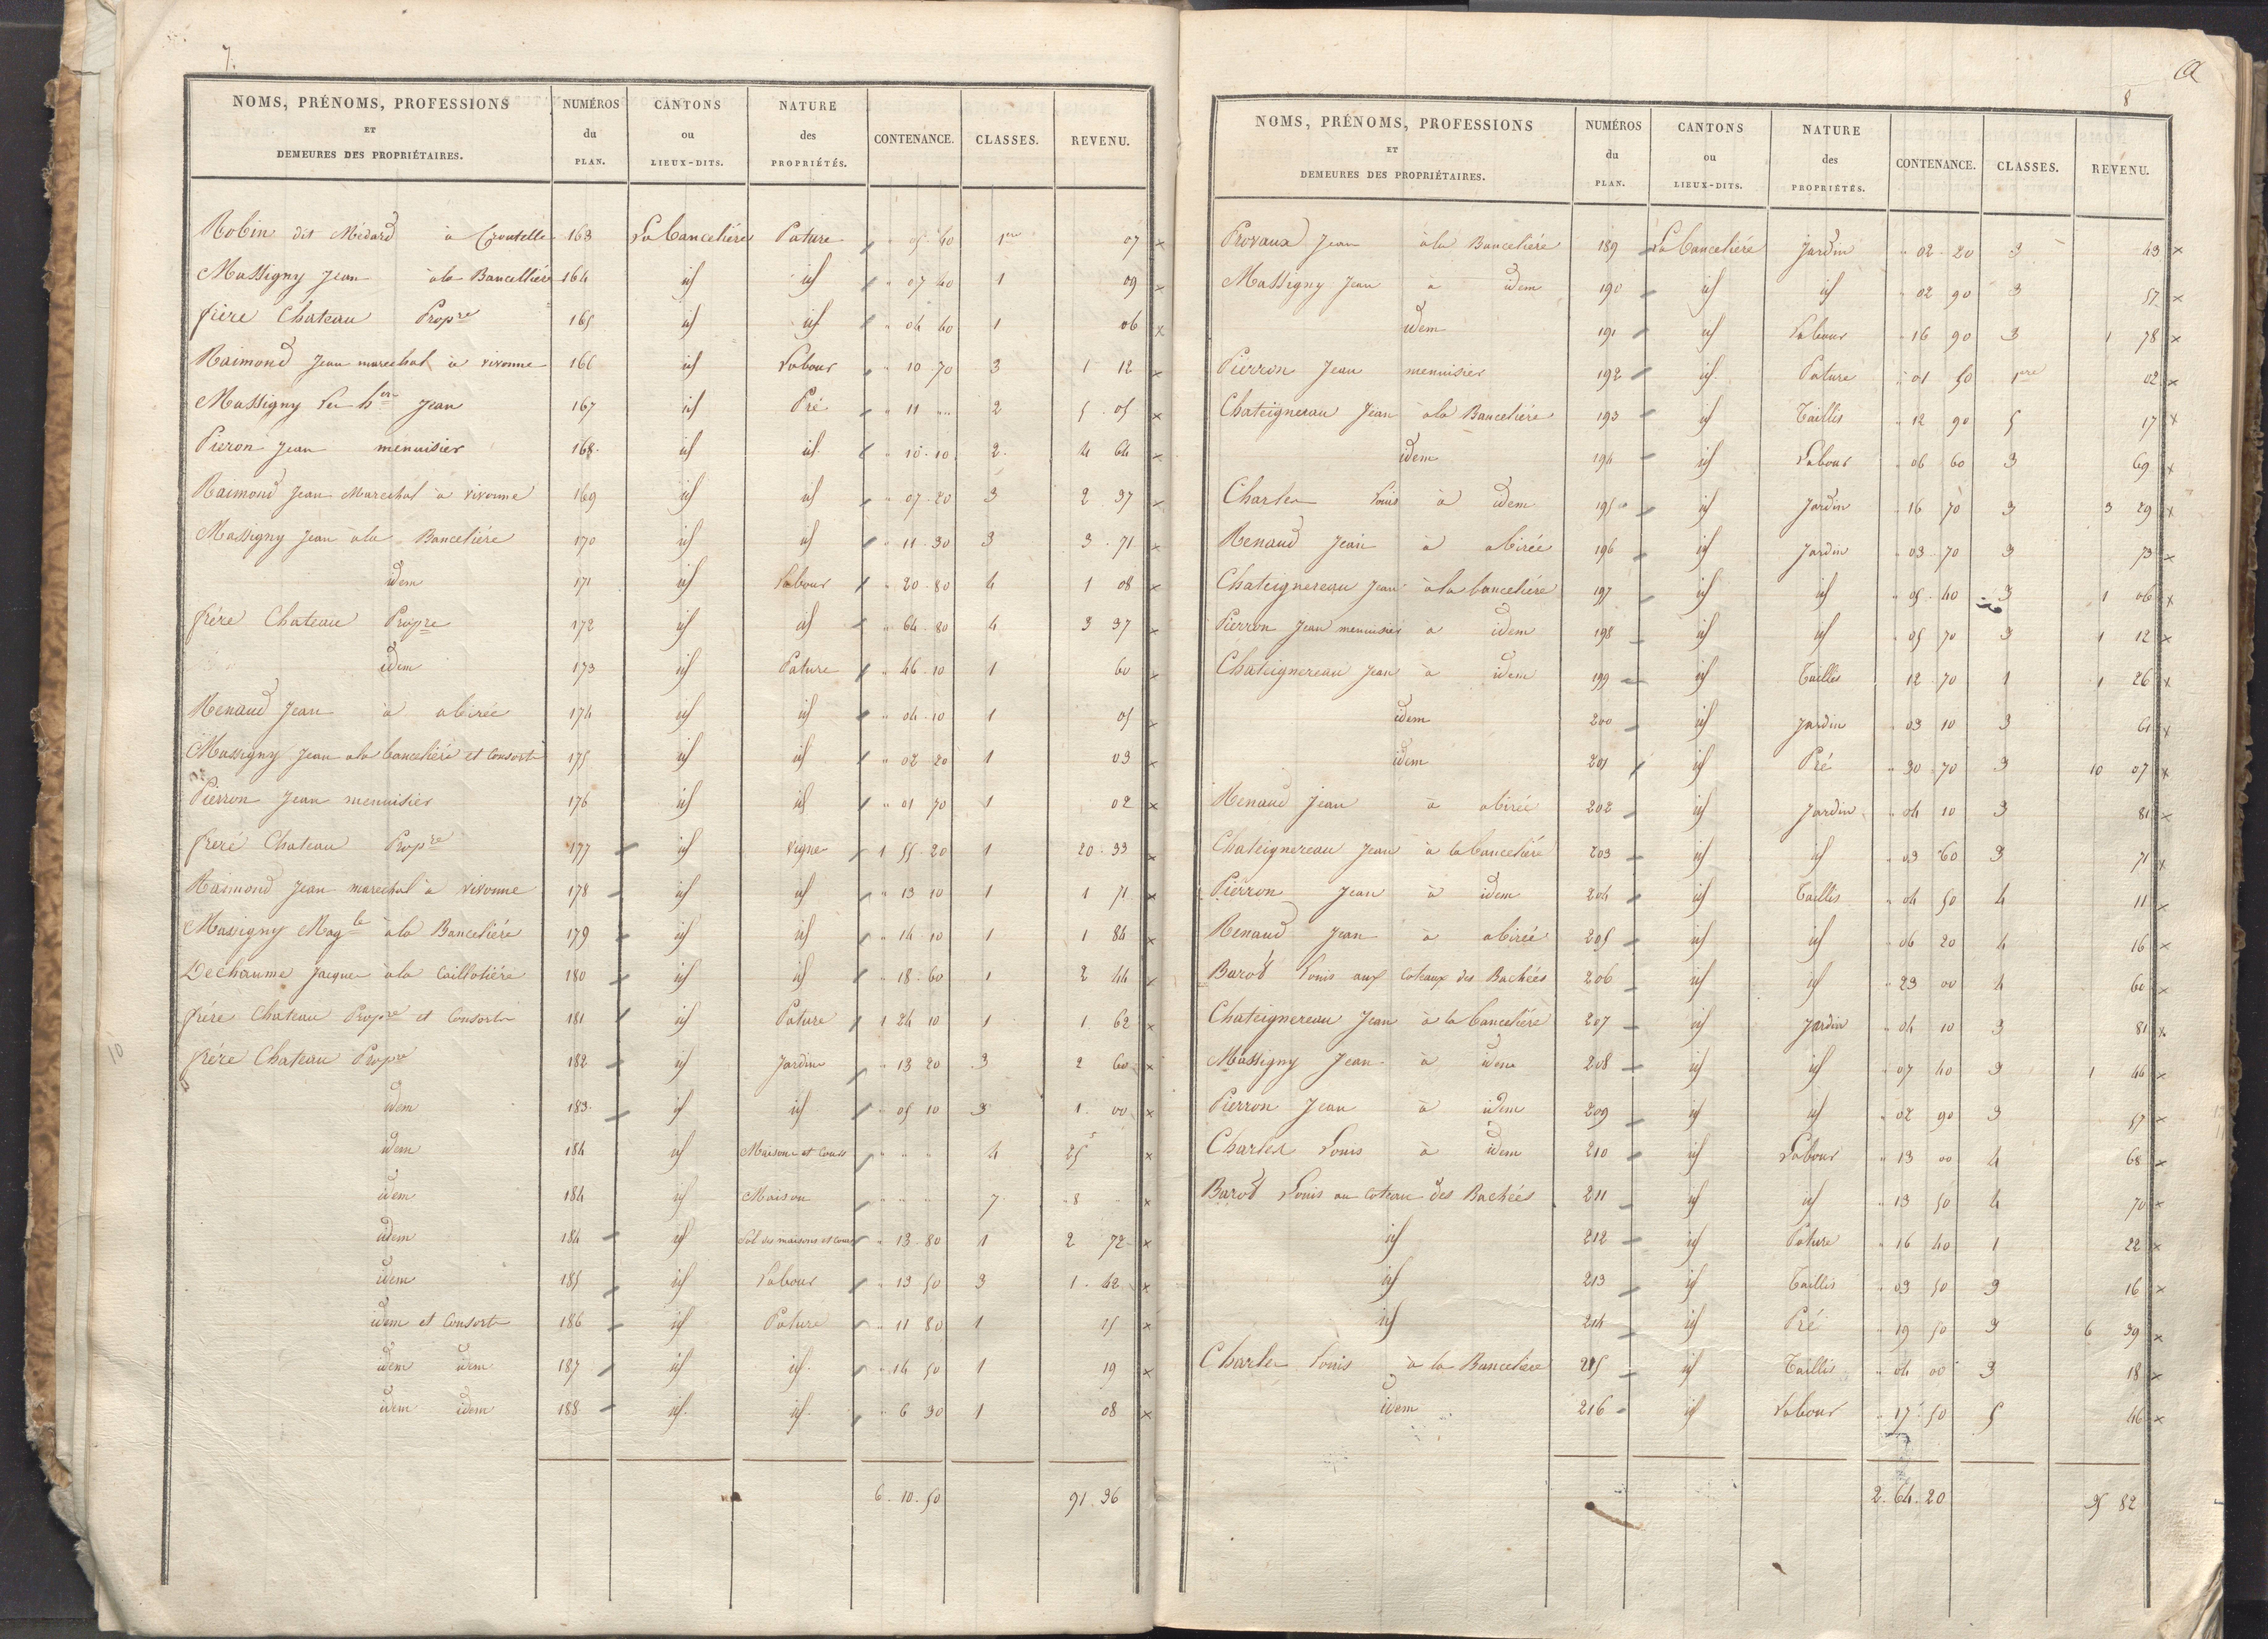 7.
NOMS, PRÉNOMS, PROFESSIONS ET DEMEURES DES PROPRIÉTAIRES. NUMÉROS du PLAN. CANTONS ou LIEUX-DITS. NATURE des PROPRIÉTÉS. CONTENANCE. CLASSES. REVENU.
Robin dit Médard à Croutelle 163 La bancelière Pature " 05 40 1re 07 x
Massigny Jean à la Bancellière 164 id id " 07 40 1 09 x
frère Chateau Propre 165 id id " 04 40 1 06 x
Raimond Jean marechal à vivonne 166 id Labour " 10 70 3 1 12 x
Massigny Jean 167 id Pré " 11 " 2 5 05 x
Pieron Jean menuisier 168 id id " 10 10 2 4 64 x
Raimond Jean Marechal à vivonne 169 id id " 07 20 3 2 37 x
Massigny Jean à la Bancelière 170 id id " 11 30 3 3 71 x
idem 171 id Labour " 20 80 4 1 08 x
frère Chateau Propre 172 id id " 64 80 4 3 37 x
idem 173 id Pature " 46 10 1 60 x
Renaud Jean à abirée 174 id id " 04 10 1 05 x
Massigny Jean a la bancelière et Consorts 175 id id " 02 20 1 03 x
Pierron Jean menuisier 176 id id " 01 70 1 02 x
freré Chateau Propre 177 id vigne 1 55 20 1 20 33 x
Raimond Jean marechal à vivonne 178 id id " 13 10 1 1 71 x
Massigny Magle à la Bancelière 179 id id " 14 10 1 1 84 x
Dechaume Jacques à la Caillotière 180 id id " 18 60 1 2 44 x
frére Chateau Propre et Consorts 181 id Pature 1 24 10 1 1 62 x
frére Chateau Propre 182 id Jardin " 13 20 3 2 60 x
idem 183 id id " 05 10 3 1 00 x
idem 184 id Maison et Cours " " " 4 25 x
idem 184 id Maison " " " 7 8 x
idem 184 id Sol des maisons et cours " 13 80 1 2 72 x
idem 185 id Labour " 13 50 3 1 42 x
idem et Consorts 186 id Pature " 11 80 1 15 x
idem idem 187 id id " 14 50 1 19 x
idem idem 188 id id " 6 30 1 08 x
6 10 50 91 36
8
NOMS, PRÉNOMS, PROFESSIONS ET DEMEURES DES PROPRIÉTAIRES. NUMÉROS du PLAN. CANTONS ou LIEUX-DITS. NATURE des PROPRIÉTÉS. CONTENANCE. CLASSES. REVENU.
Provaux Jean à la Bancelière 189 La bancelière Jardin " 02 20 3 43 x
Massigny Jean à idem 190 id id " 02 90 3 57 x
idem 191 id Labour " 16 90 3 1 78 x
Pierron Jean menuisier 192 id Pature " 01 50 1ere 02 x
Chateignerau Jean à la Bancelière 193 id Taillis " 12 90 5 17 x
idem 194 id Labour " 06 60 3 69 x
Charles Louis à idem 195 id Jardin " 16 70 3 3 29 x
Renaud Jean à abirée 196 id Jardin " 03 70 3 73 x
Chateignereau Jean à la bancelière 197 id id " 05 40 3 1 06 x
Pierron Jean menuisier à idem 198 id id " 05 70 3 1 12 x
Chateignereau Jean à idem 199 id Taillis 12 70 1 1 26 x
idem 200 id Jardin " 03 10 3 61 x
idem 201 id Pré " 30 70 3 10 07 x
Renaud Jean à abirée 202 id Jardin " 04 10 3 81 x
Chateignereau Jean à la bancelière 203 id id " 03 60 3 71 x
Pierron Jean à idem 204 id Taillis " 04 50 4 11 x
Renaud Jean à abireé 205 id id " 06 20 4 16 x
Barod Louis aux Coteaux des Bachées 206 id id " 23 00 4 60 x
Chateignereau Jean à la bancelière 207 id Jardin " 04 10 3 81 x
Massigny Jean à idem 208 id id " 07 40 3 1 46 x
Pierron Jean à idem 209 id id " 02 90 3 57 x
Charles Louis à idem 210 id Labour " 13 00 4 68 x
Barod Louis au coteau des Bachées 211 id id " 13 50 4 70 x
id 212 id Pature " 16 40 1 22 x
id 213 id Taillis " 03 50 3 16 x
id 214 id Pré " 19 50 3 6 39 x
Charles Louis à la Bancelière 215 id Taillis " 04 00 3 18 x
idem 216 id Labour " 17 50 5 46 x
2 64 20 35 82